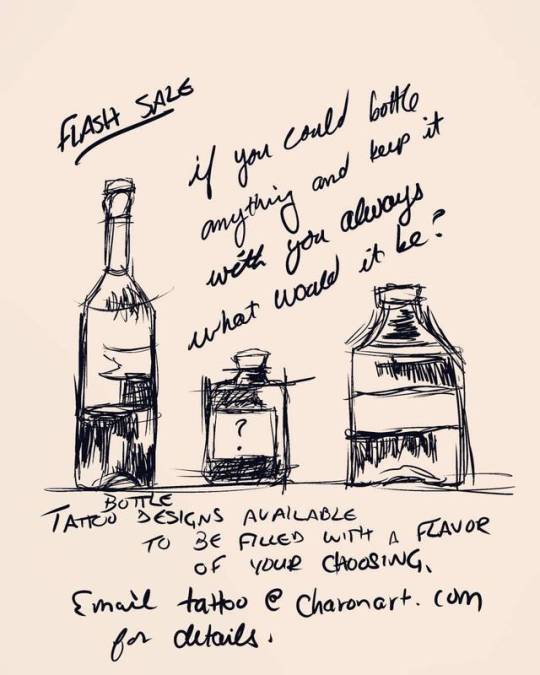 FLASH SALE
if you could bottle
anything and keep it
with you always
what would it be?
?
BOTTLE
TATTOO DESIGNS AVAILABLE
TO BE FILLED WITH A FLAVOR
OF YOUR CHOOSING.
Email tattoo @ Charonart.com
for details.